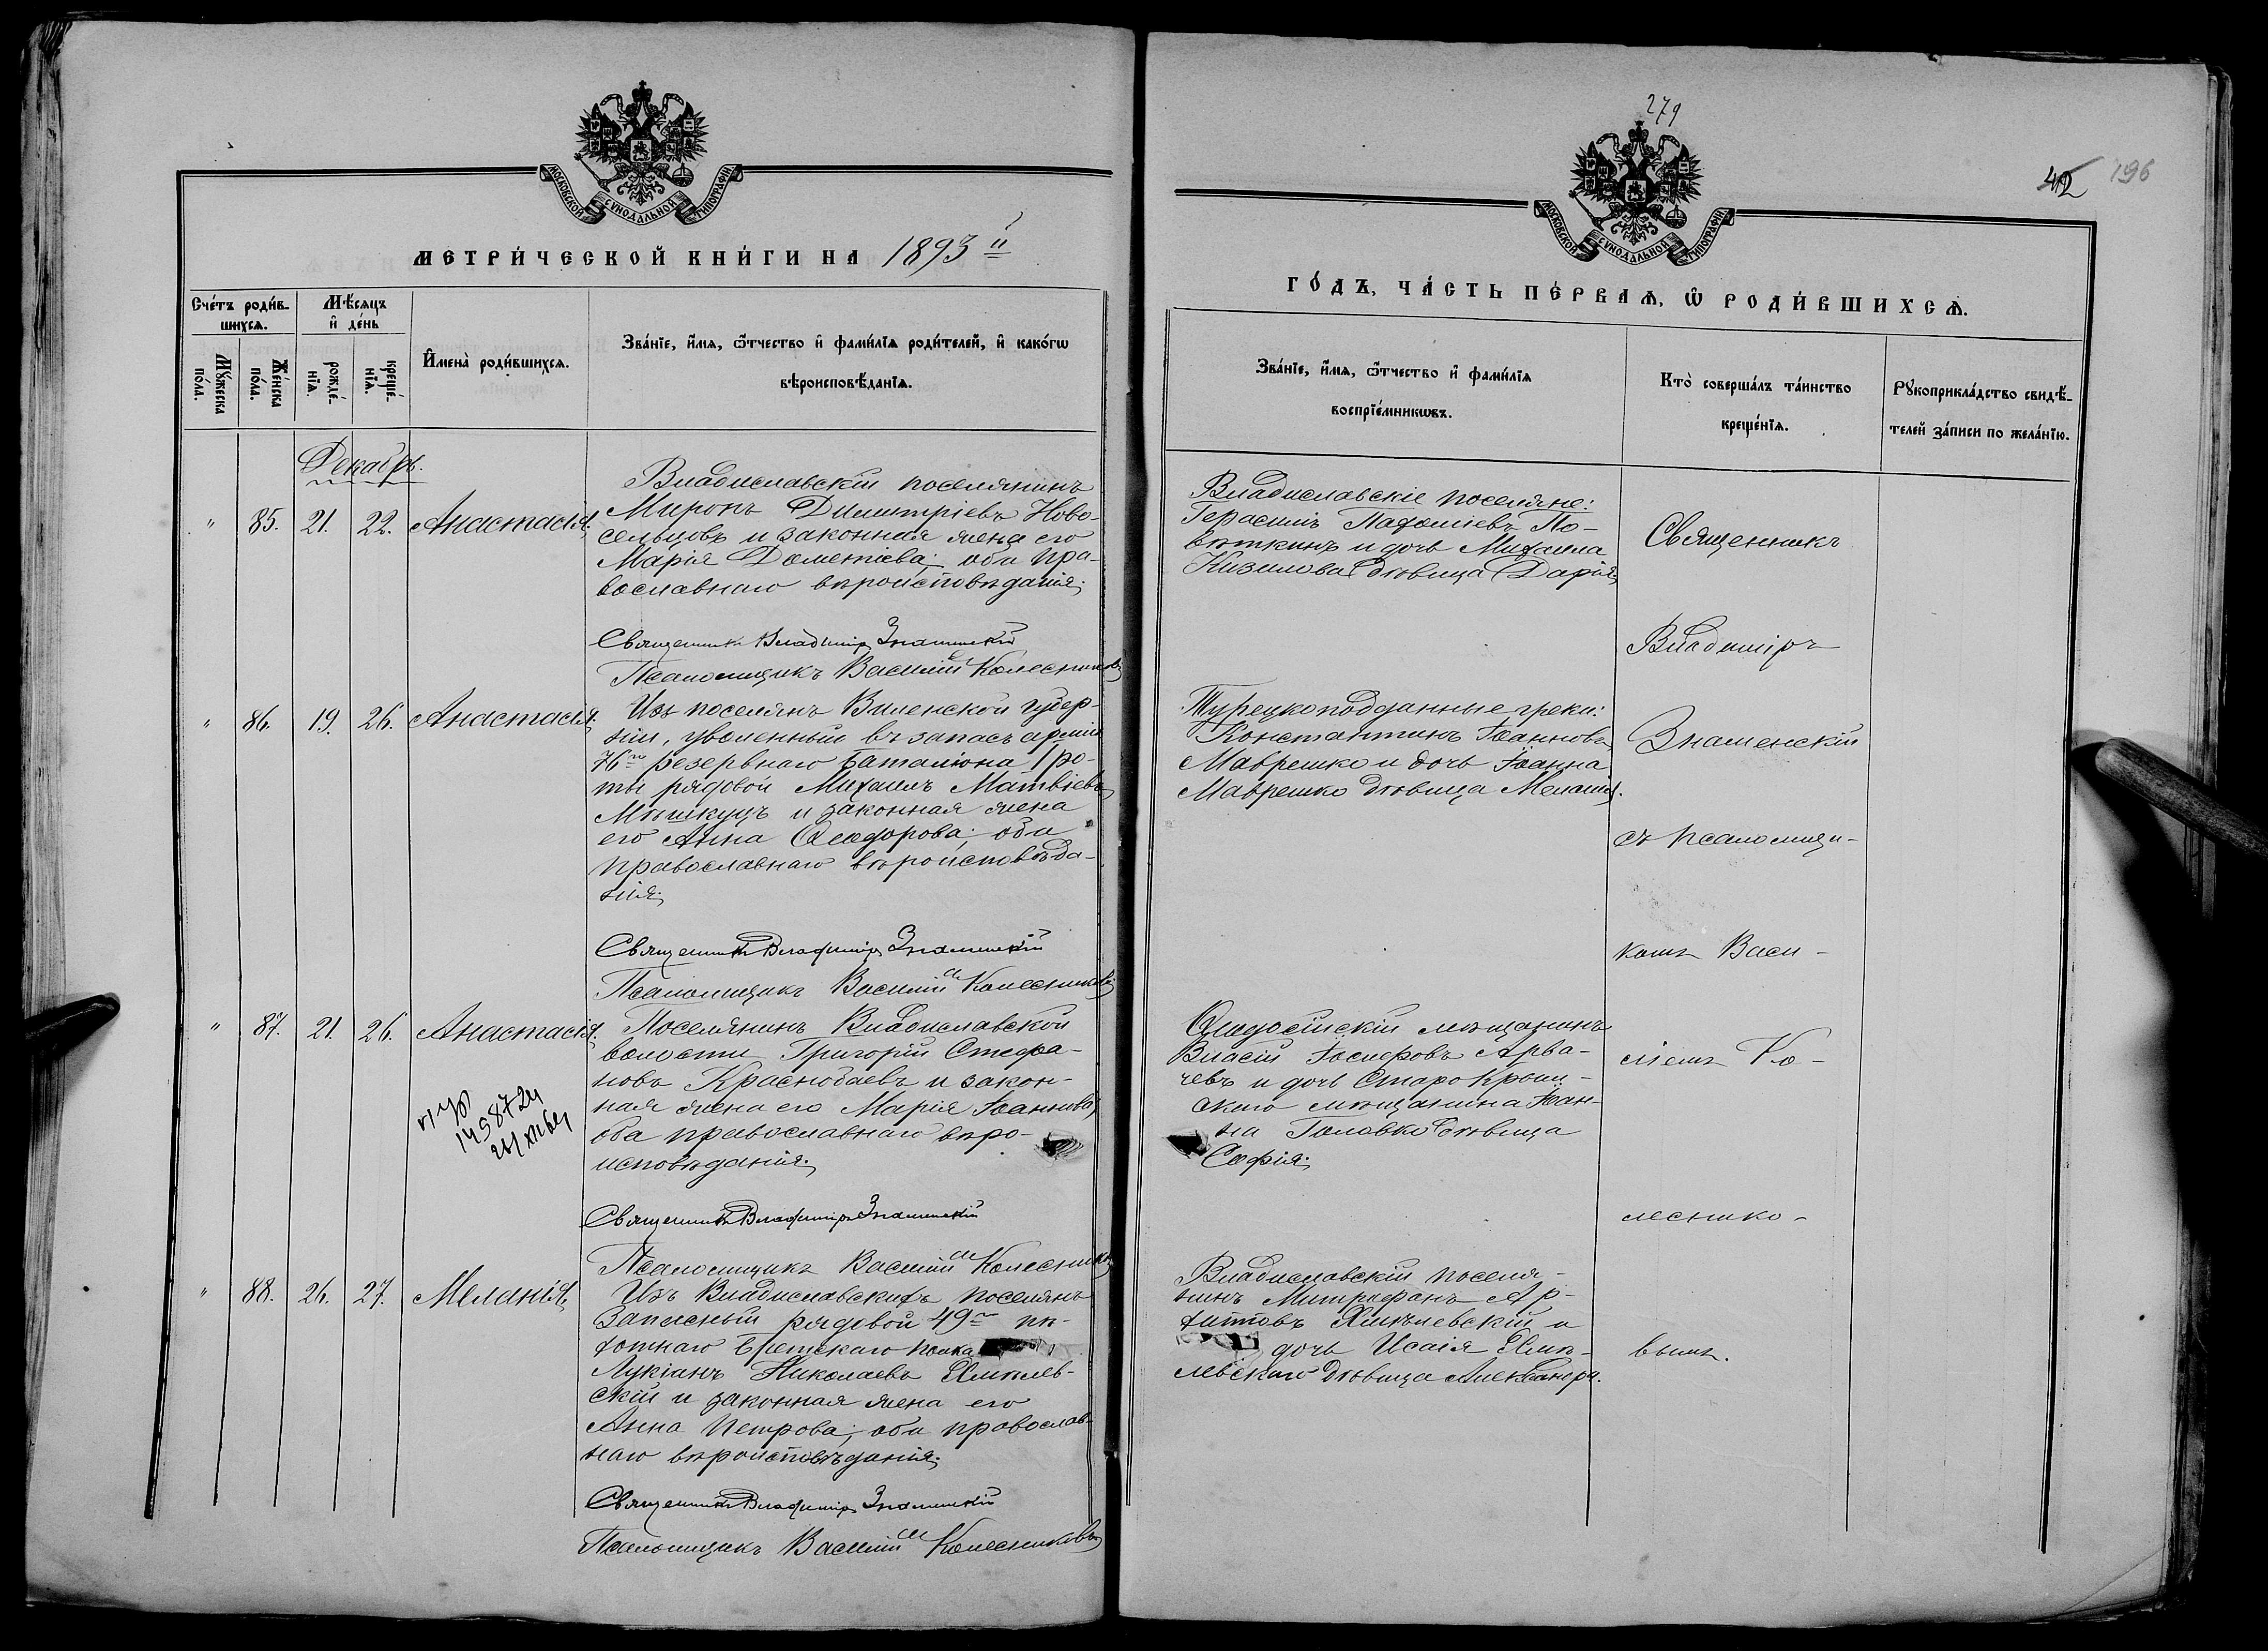 МОСКОВСКОЙ СѴНОДАЛЬНОЙ ТИПОГРАФІИ
МЕТРИ́ЧЕСКОЙ КНИ́ГИ НА 1893й
Сче́тъ роди́в-
шихсѧ.
Мѣ́сяцъ
и҆ де́нь
Мꙋ́жеска
по́ла.
Же́нска
по́ла.
рожде́-
нїѧ.
креще́-
нїѧ.
И҆мена̀ роди́вшихсѧ.
Зва́нїе, и҆́мѧ, ѻ҆́тчество и҆ фами́лїѧ роди́телей, и҆ како́гѡ
вѣроисповѣ́данїѧ.
Декабрь.
" 85. 21. 22. Анастасія.
Владиславскій поселянинъ
Миронъ Димитріевъ Ново-
сельцовъ и законная жена его
Марія Дометіева; оба пра-
вославнаго вѣроисповѣданія;
Священникъ Владиміръ Знаменскій
Псаломщикъ Василій Колесниковъ
" 86. 19. 26. Анастасія.
Изъ поселянъ Виленской губер-
ніи, уволенный въ запасъ арміи
76го резервнаго баталіона 1 ро-
ты рядовой Михаилъ Матвіевъ
Мишкуцъ и законная жена
его Анна Ѳеодорова; оба
православнаго вѣроисповѣда-
нія;
Священникъ Владиміръ Знаменскій
Псаломщикъ Василій Колесниковъ
" 87. 21. 26. Анастасія.
Поселянинъ Владиславской
волости Григорій Стефа-
новъ Краснобаевъ и закон-
ная жена его Марія Іоаннова;
оба православнаго вѣро-
исповѣданія;
Священникъ Владиміръ Знаменскій
Псаломщикъ Василій Колесниковъ
" 88. 26. 27. Меланія.
Изъ Владиславскихъ поселянъ
запасный рядовой 49го пѣ-
хотнаго Брестскаго полка
Лукіанъ Николаевъ
и законная жена его
Анна Петрова; оба православ-
наго вѣроисповѣданія;
Священникъ Владиміръ Знаменскій
Псаломщикъ Василій Колесниковъ
279
42 196
МОСКОВСКОЙ СѴНОДАЛЬНОЙ ТИПОГРАФІИ
ГО́ДЪ, ЧА́СТЬ ПЕ́РВАѦ, Ѡ҆ РОДИ́ВШИХСѦ.
Зва́нїе, и҆́мѧ, ѻ҆́тчество и҆ фами́лїѧ
воспрїе́мникѡвъ.
Кто̀ соверша́лъ та́инство
креще́нїѧ.
Рꙋкоприкла́дство свидѣ́-
телей за́писи по жела́нїю.
Владиславскіе поселяне:
Герасимъ Пахоміевъ По-
вѣткинъ и дочь Михаила
Кизилова дѣвица Дарія;
Турецкоподданные греки:
Константинъ Іоанновъ
Маврешко и дочь Іоанна
Маврешко дѣвица Меланія.
Ѳеодосійскій мѣщанинъ
Власій Іосифовъ Арва-
чевъ и дочь Старокрым-
скаго мѣщанина Іоан-
на Головко дѣвица
Софія;
Владиславскій поселя-
нинъ Митрофанъ
и
дочь Исаія
дѣвица Александра.
Священникъ
Владиміръ
Знаменскій
съ псаломщи-
комъ Васи-
ліемъ Ко-
леснико-
вымъ.